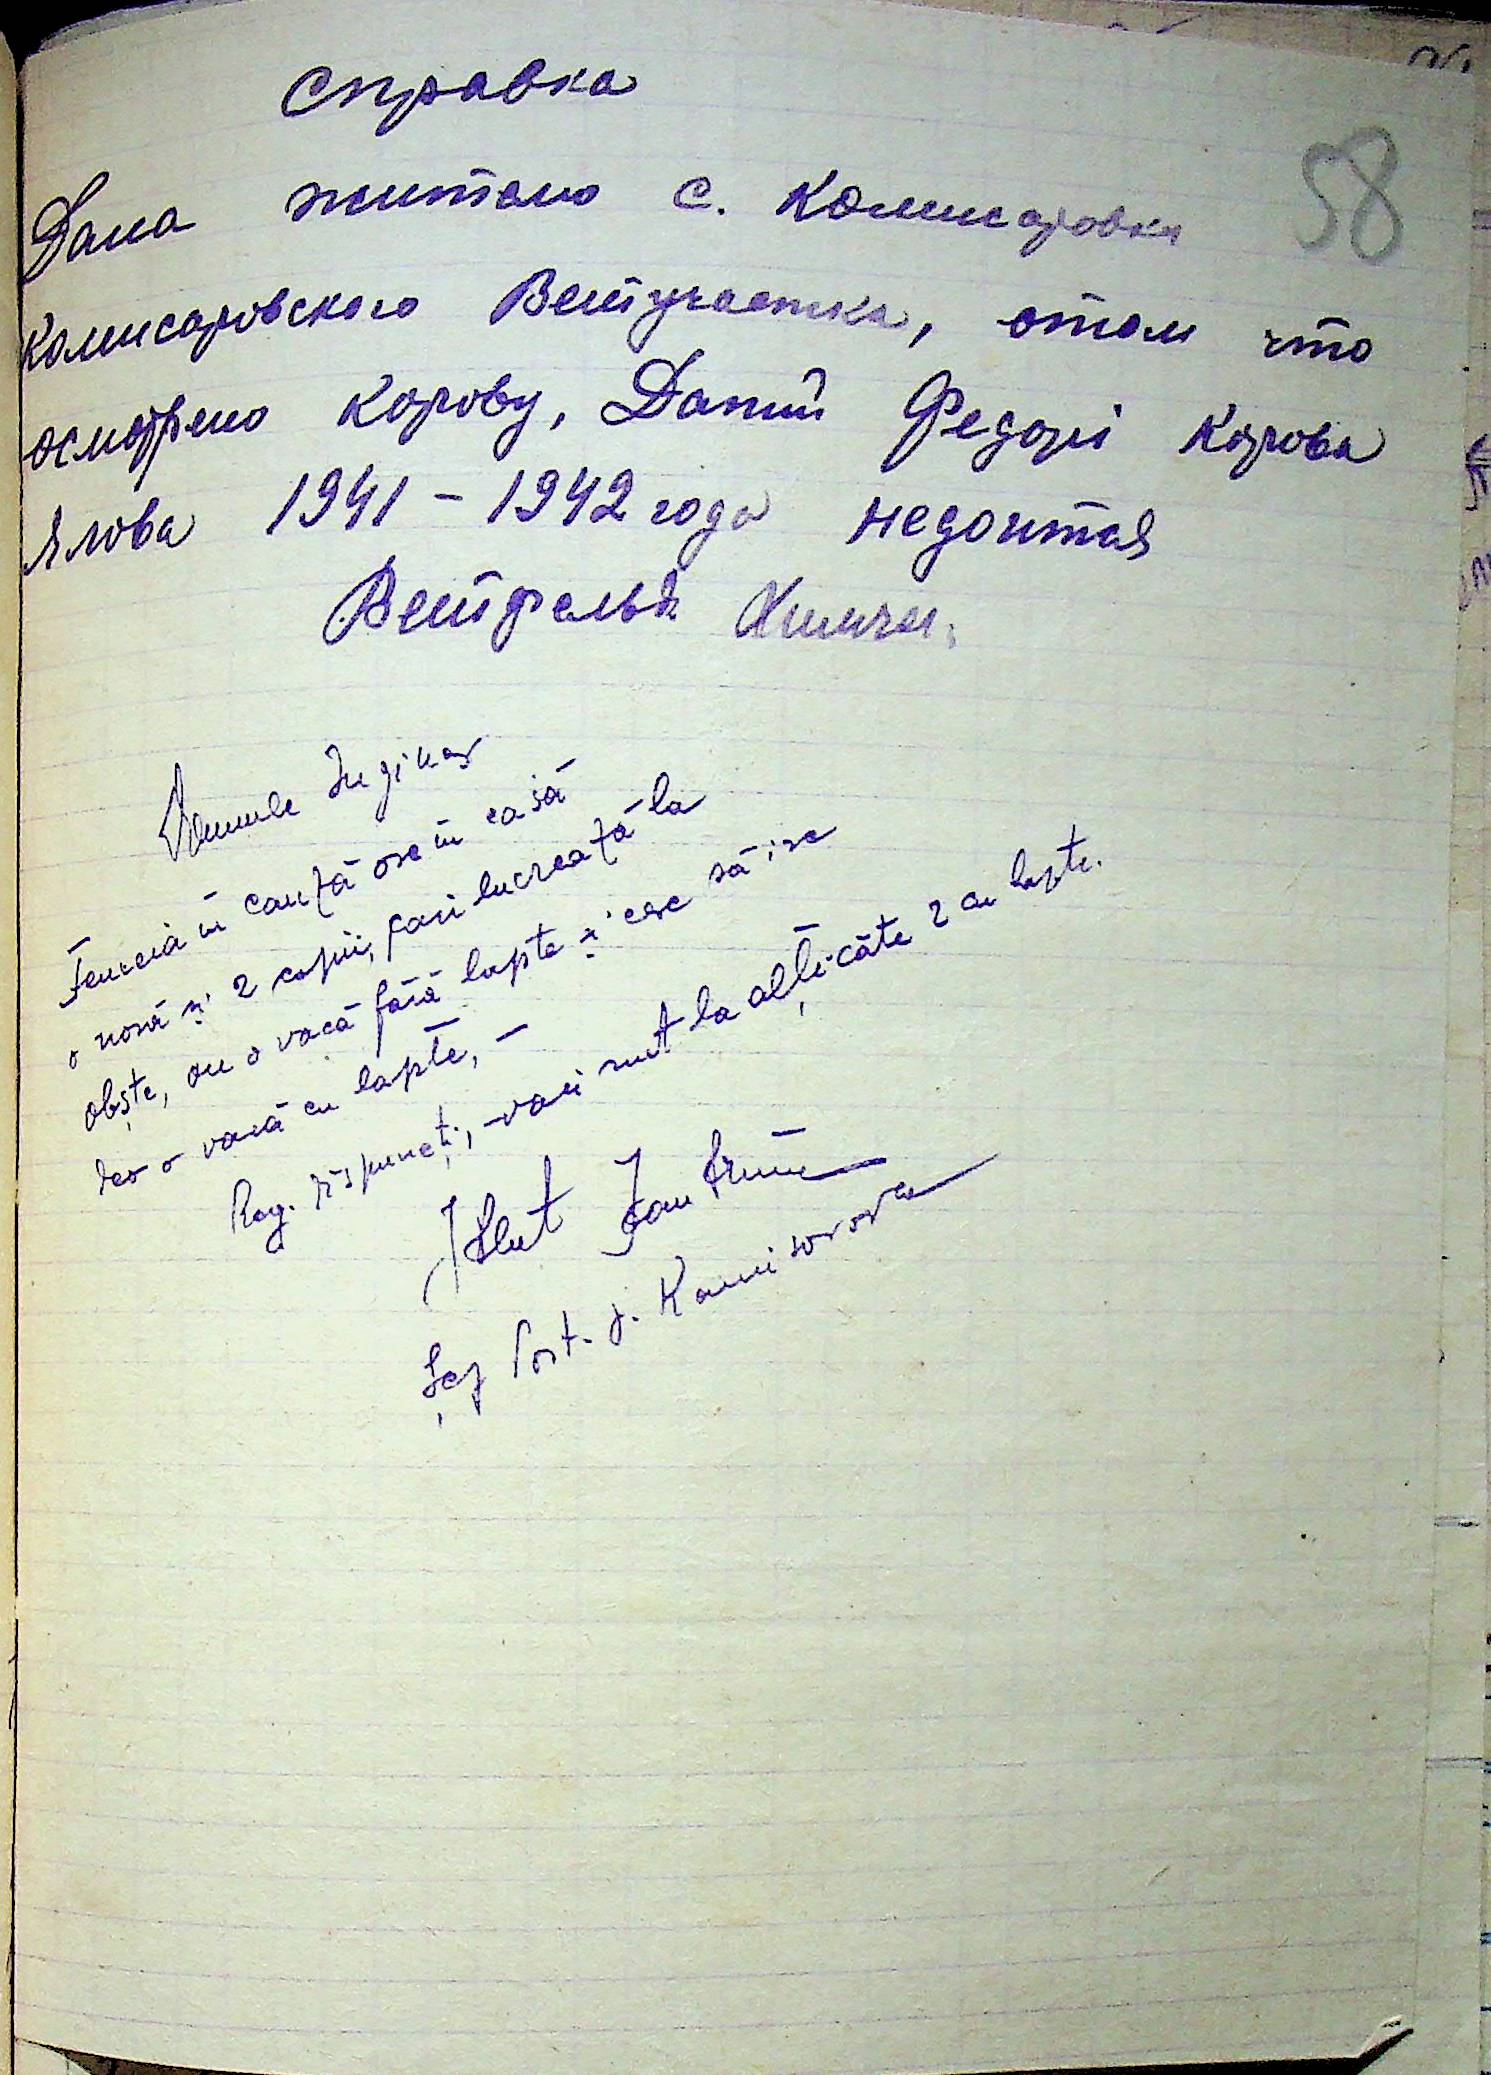 Справка
58
Дана жителю с. Комисаровки
Комисаровского Ветучастка, отом что
осмотрено корову, Датий Федорі корова
ялова 1941 - 1942 года недоитая
Ветфельд
Domnule Inginer
Femeia în cauză are în casă
o noră și 2 copii, cari lucrează la
obște, au o vacă fără lapte și cere să i se
dea o vacă cu lapte, -
Rog. răspuneți, - vaci sunt la alții câte 2 cu lapte.
Șef Post. j. Komisarovca